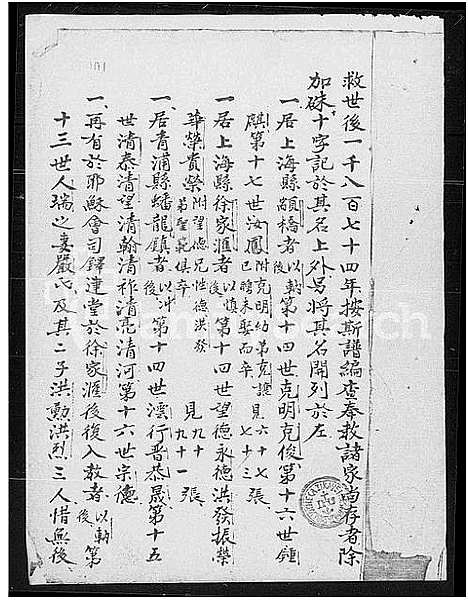 救世後一千八百七十四年按斯譜編查奉教諸家尚存者除
加硃十字記於其名上外另將其名開列於左
一居上海縣顓橋者 以軾後 第十四世克明克俊第十六世鍾
麒第十七世汝鳳 附克明幼弟克讓已聘未娶而卒 見六十七 七十三 張
一居上海縣徐家滙者 以慎後 第十四世望德永德洪發振榮
華榮貴榮 附望德兄性德洪發弟聖範俱卒 見九十 九十一 張
一居青浦縣蟠龍鎮者 後 第十四世澐行普恭晟第十五
世清泰清望清翰清祚清亮清河第十六世宗德
一再有於耶穌會司鐸達堂於徐家滙後復入教者 以軾後 第
十三世人瑞之妻嚴氏及其二子洪勳洪烈三人惜無後